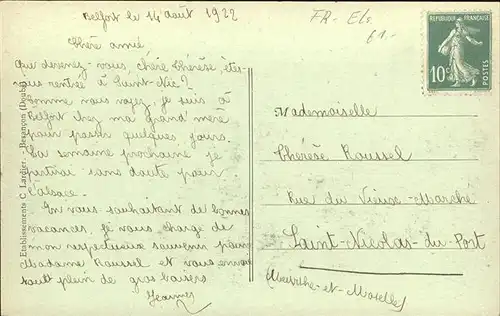 Belfort le 14 août 1922
Chère amie,
Que devenez-vous, chère Thérèse, êtes-
vous rentrée à Saint-Nic?
Comme vous voyez, je suis à
Belfort chez ma grand'mère
pour passer quelques jours.
La semaine prochaine je
partirai sans doute pour
l'alsace.
En vous souhaitant de bonnes
vacances, je vous charge de
mon respectueux souvenir pour
Madame Roussel et vous envoie
tout plein de gros baisers
Jeanne
Etablissements C. Lardier - Besançon (Doubs)
FR - Els
61.-
RÉPUBLIQUE FRANÇAISE
10c
POSTES
Mademoiselle
Thérèse Roussel
Rue du Vieux-Marché
Saint-Nicolas-du-Port
(Meurthe-et-Moselle)